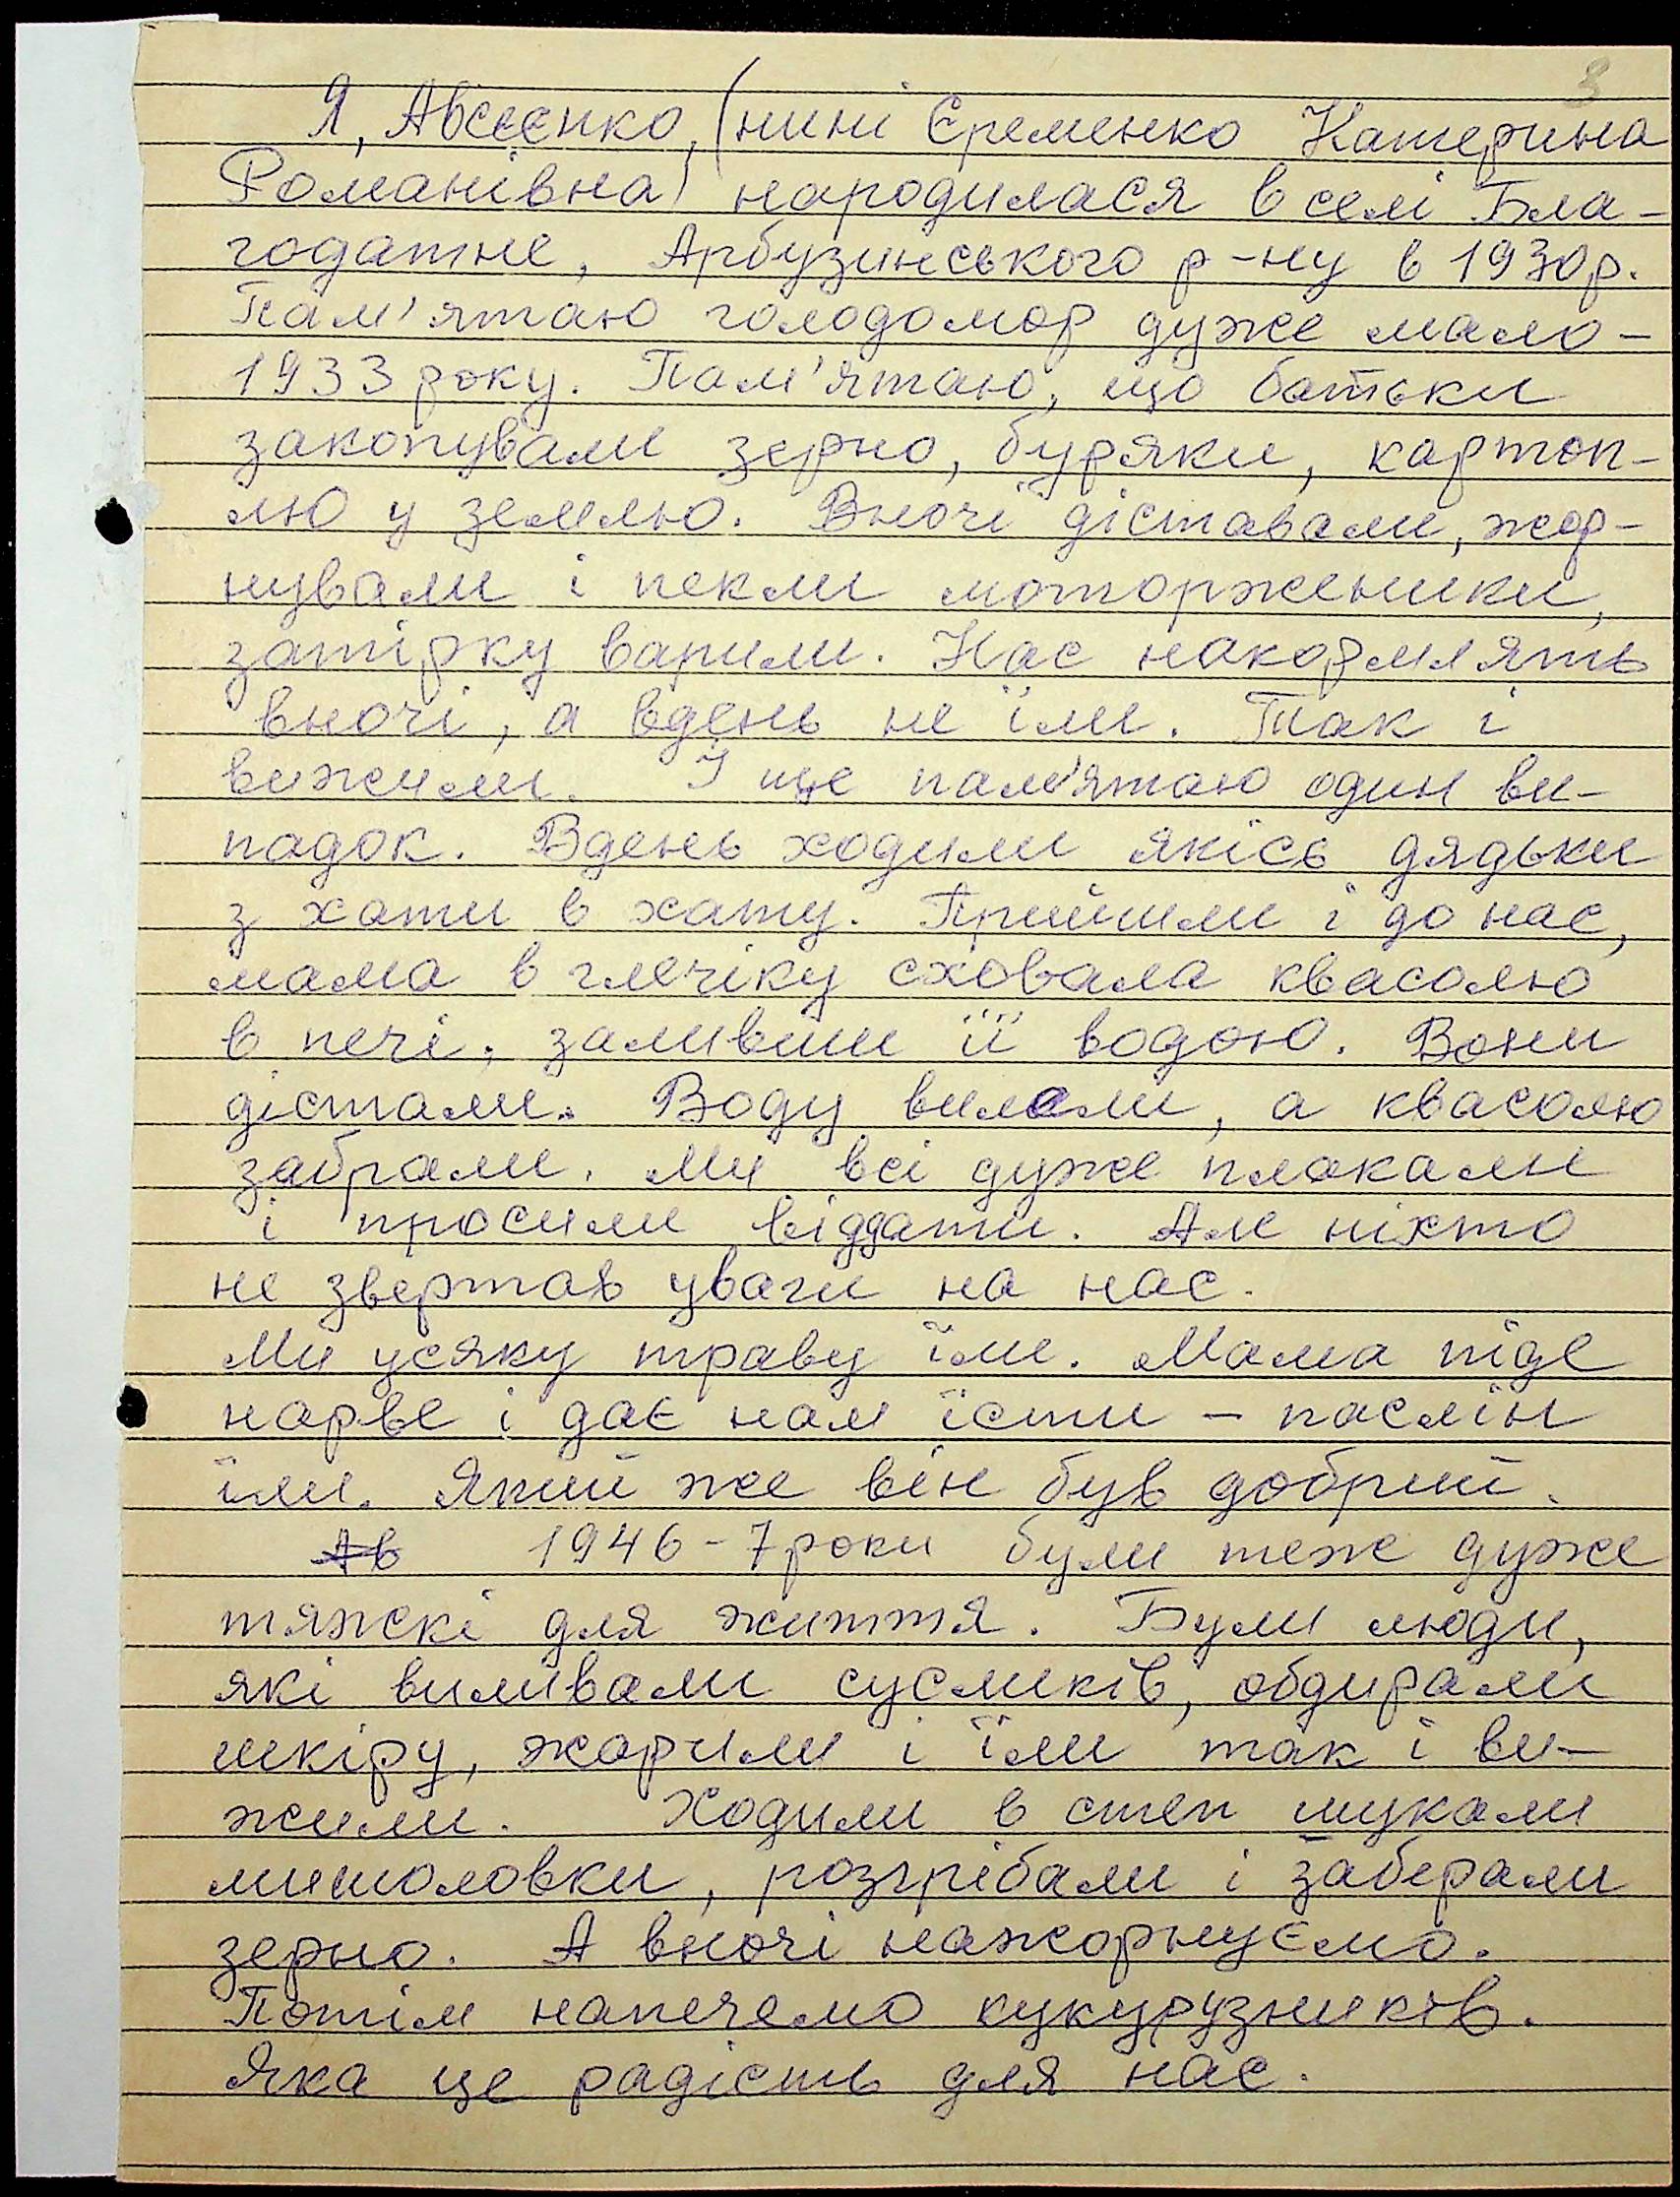 3
Я, Авсєєнко, (нині Єременко Катерина
Романівна) народилася в селі Бла-
годатне, Арбузинського р-ну в 1930р.
Пам'ятаю голодомор дуже мало -
1933 року. Пам'ятаю, що батьки
закопували зерно, буряки, картоп-
лю у землю. Вночі діставали, жор-
нували і пекли моторженики,
затірку варили. Нас накормлять
вночі, а вдень не їли. Так і
вижили. І ще пам'ятаю один ви-
падок. Вдень ходили якісь дядьки
з хати в хату. Прийшли і до нас,
мама в глечіку сховала квасолю
в печі, заливши її водою. Вони
дістали. Воду вилели, а квасолю
забрали. Ми всі дуже плакали
і просили віддати. Але ніхто
не звертав уваги на нас.
Ми усяку траву їли. Мама піде
нарве і дає нам їсти - паслін
їли. Який же він був добрий.
Ав 1946-7 роки були теж дуже
тяжкі для життя. Були люди,
які виливали сусликів, обдирали
шкіру, жарили і їли так і ви-
жили. Ходили в степ шукали
мишоловки, розгрібали і заберали
зерно. А вночі нажорнуємо.
Потім напечемо кукурузників.
Яка це радість для нас.